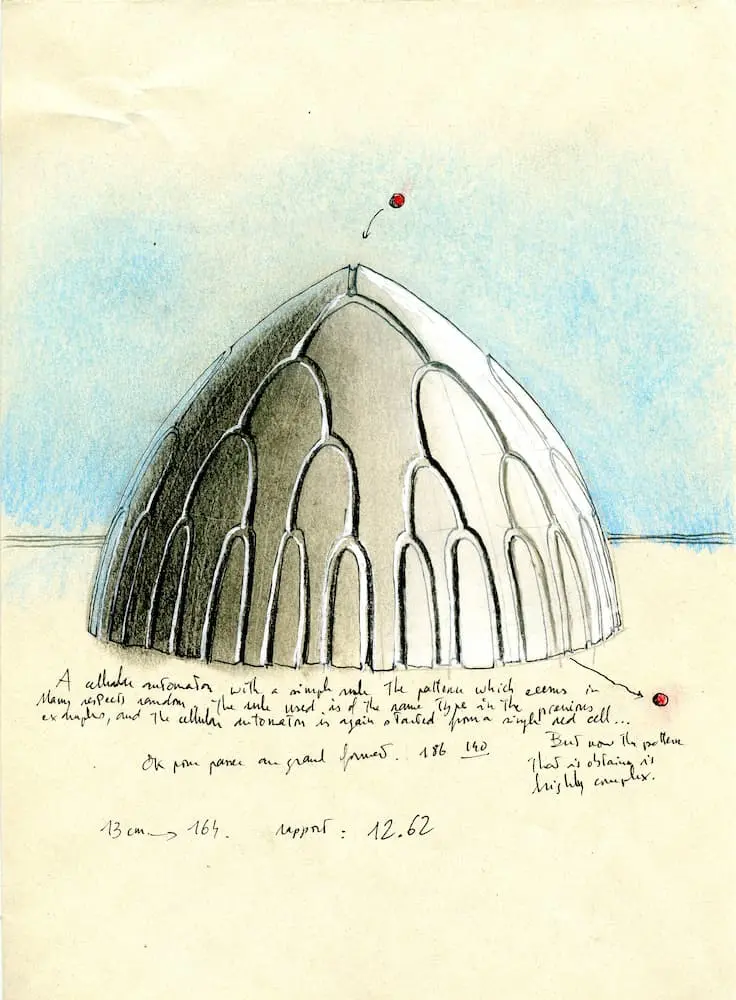 A cellular automaton, with a simple rule. The pattern which seems in
Many respects random. The rule used is of the same type in the previous
examples, and the cellular automaton is again started from a single red cell...
But now the pattern
that is obtain is
highly complex.
OK pour passer au grand format. 186 140
13 cm → 164. rapport : 12.62